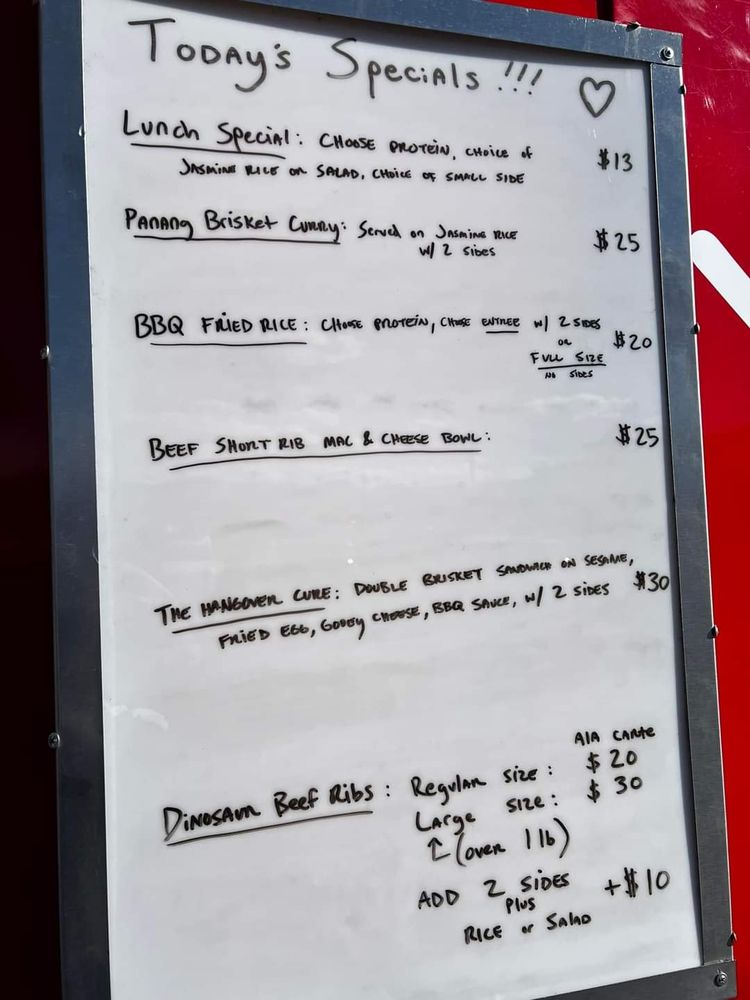 Today's Specials !!! ♡
Lunch Special: Choose Protein, Choice of $13
Jasmine Rice or Salad, Choice of Small Side
Panang Brisket Curry: Served on Jasmine Rice $25
w/ 2 Sides
BBQ Fried Rice: Choose Protein, Chose Entree w/ 2 Sides $20
or
Full Size
No Sides
Beef Short Rib Mac & Cheese Bowl: $25
The Hangover Cure: Double Brisket Sandwich on Sesame, $30
Fried Egg, Gooey Cheese, BBQ Sauce, w/ 2 Sides
Ala Carte
Dinosaur Beef Ribs: Regular Size: $20
Large Size: $30
↑ (over 1 lb)
Add 2 Sides +$10
Plus
Rice or Salad